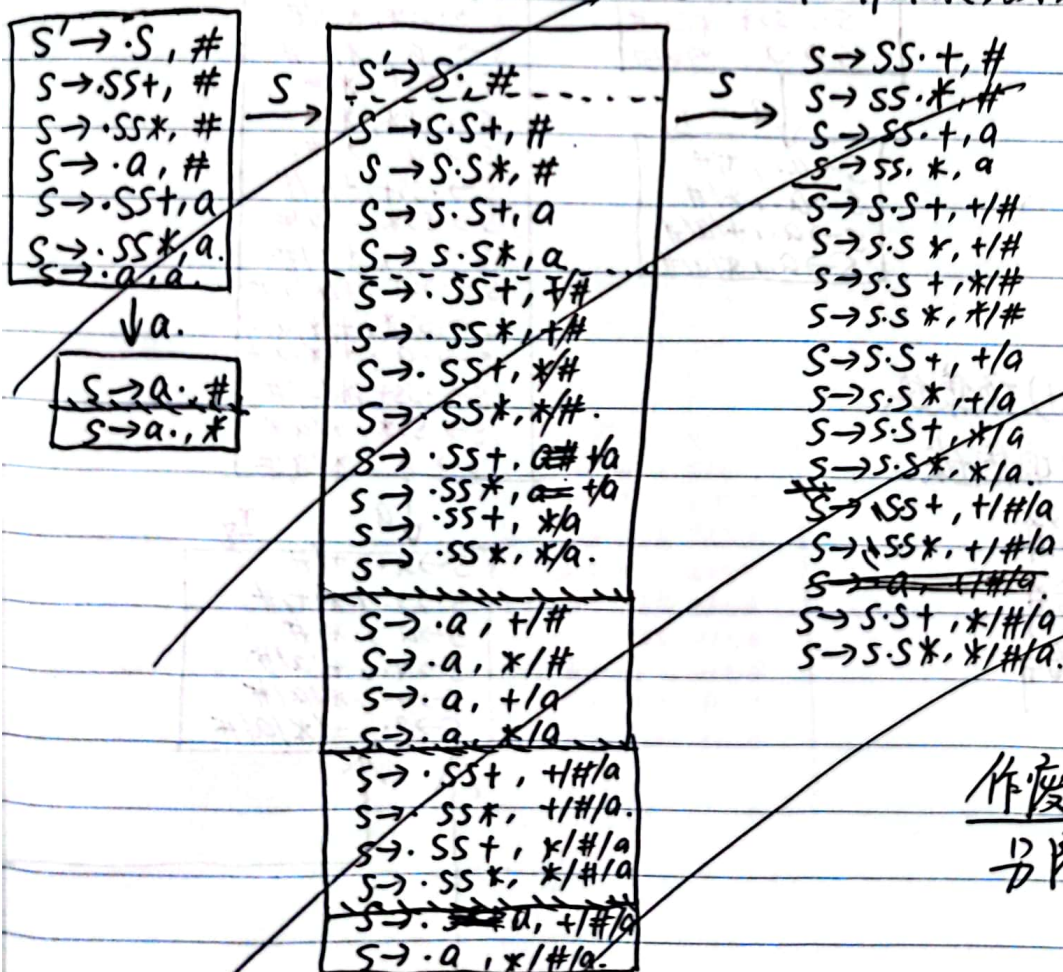 S'→·S, #
S→·SS+, #
S→·SS*, #
S→·a, #
S→·SS+, a
S→·SS*, a.
S→·a, a.
↓a.
S→a·, #
S→a·, *
S
→
S'→S·, #
S→S·S+, #
S→S·S*, #
S→S·S+, a
S→S·S*, a
S→·SS+, +/#
S→·SS*, +/#
S→·SS+, */#
S→·SS*, */#.
S→·SS+, +/a
S→·SS*, +/a
S→·SS+, */a
S→·SS*, */a.
S→·a, +/#
S→·a, */#
S→·a, +/a
S→·a, */a
S→·SS+, +/#/a
S→·SS*, +/#/a.
S→·SS+, */#/a
S→·SS*, */#/a
S→·a, +/#/a
S→·a, */#/a.
S
→
S→SS·+, #
S→SS·*, #
S→SS·+, a
S→SS·*, a
S→S·S+, +/#
S→S·S*, +/#
S→S·S+, */#
S→S·S*, */#
S→S·S+, +/a
S→S·S*, +/a
S→S·S+, */a
S→S·S*, */a.
S→·SS+, +/#/a
S→·SS*, +/#/a
S→a, +/#/a.
S→S·S+, */#/a
S→S·S*, */#/a.
作废